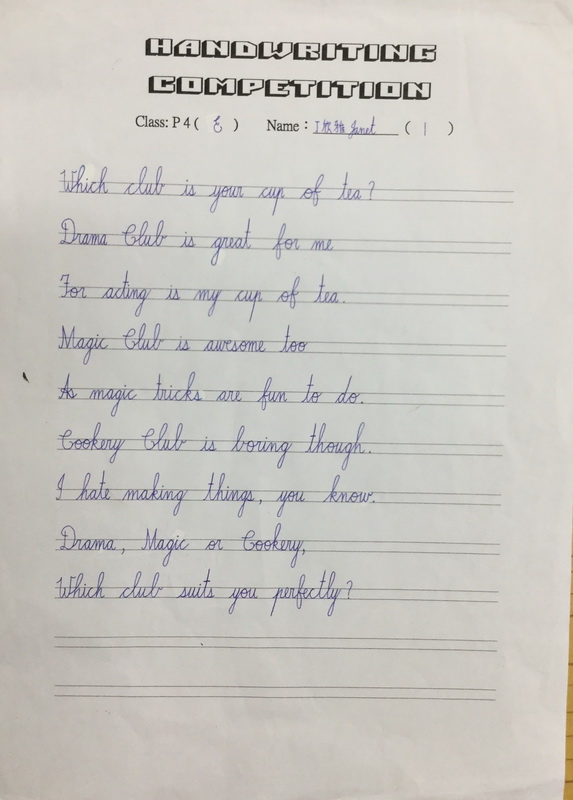 HANDWRITING
COMPETITION
Class: P 4 ( ) Name : Janet ( 1 )
Which club is your cup of tea?
Drama Club is great for me
For acting is my cup of tea.
Magic Club is awesome too
As magic tricks are fun to do.
Cookery Club is boring though.
I hate making things, you know.
Drama, Magic or Cookery,
Which club suits you perfectly?